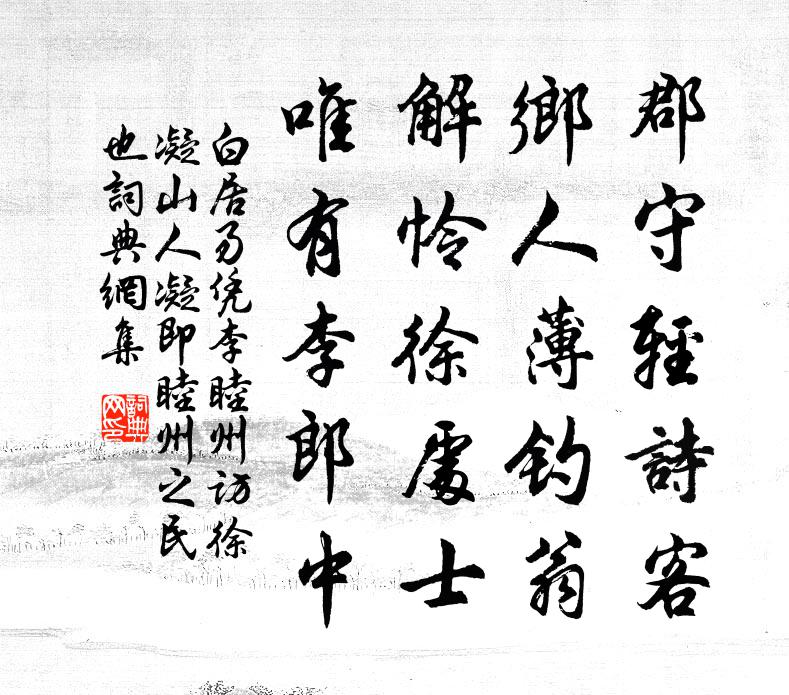 郡守輕詩客
鄉人薄钓翁
解怜徐處士
唯有李郎中
白居易凭李睦州访徐
凝山人凝即睦州之民
也詞典網集
詞典
网印